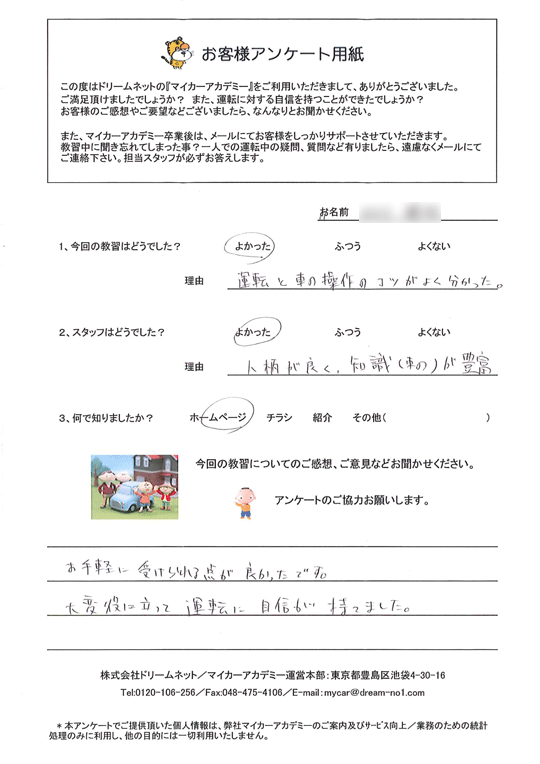 お客様アンケート用紙
この度はドリームネットの『マイカーアカデミー』をご利用いただきまして、ありがとうございました。
ご満足頂けましたでしょうか？ また、運転に対する自信を持つことができたでしょうか？
お客様のご感想やご要望などございましたら、なんなりとお聞かせください。
また、マイカーアカデミー卒業後は、メールにてお客様をしっかりサポートさせていただきます。
教習中に聞き忘れてしまった事？一人での運転中の疑問、質問など有りましたら、遠慮なくメールにて
ご連絡下さい。担当スタッフが必ずお答えします。
お名前
1、今回の教習はどうでした？ よかった ふつう よくない
理由 運転と車の操作のコツがよく分かった。
2、スタッフはどうでした？ よかった ふつう よくない
理由 人柄が良く、知識(車の)が豊富
3、何で知りましたか？ ホームページ チラシ 紹介 その他( )
今回の教習についてのご感想、ご意見などお聞かせください。
アンケートのご協力お願いします。
お手軽に受けられる点が良かったです。
大変役に立って運転に自信が持てました。
株式会社ドリームネット／マイカーアカデミー運営本部：東京都豊島区池袋4-30-16
Tel:0120-106-256／Fax:048-475-4106／E-mail:mycar@dream-no1.com
＊本アンケートでご提供頂いた個人情報は、弊社マイカーアカデミーのご案内及びサービス向上／業務のための統計
処理のみに利用し、他の目的には一切利用いたしません。